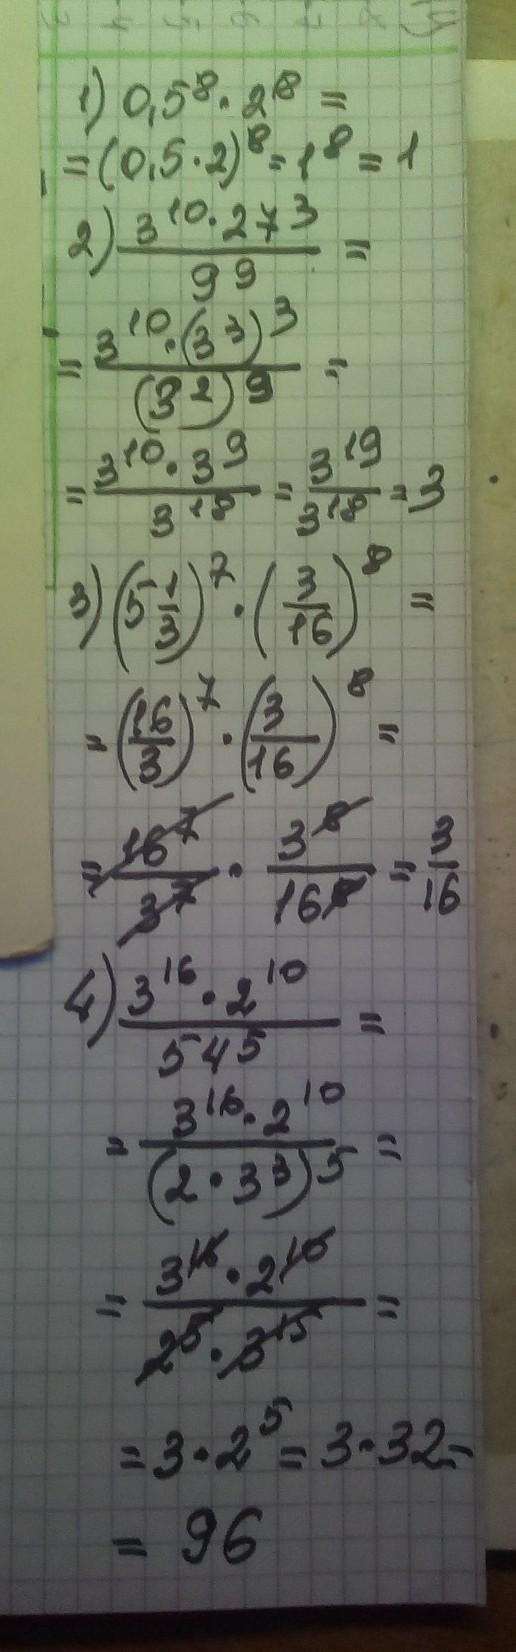 1) 0,5⁸ · 2⁸ =
= (0,5 · 2)⁸ = 1⁸ = 1
2) (3¹⁰ · 27³)/(9⁹) =
= (3¹⁰ · (3³)³)/((3²)⁹) =
= (3¹⁰ · 3⁹)/(3¹⁸) = 3¹⁹/3¹⁸ = 3
3) (5 1/3)⁷ · (3/16)⁸ =
= (16/3)⁷ · (3/16)⁸ =
= 16⁷/3⁷ · 3⁸/16⁸ = 3/16
4) (3¹⁶ · 2¹⁰)/(54⁵) =
= (3¹⁶ · 2¹⁰)/((2 · 3³)⁵) =
= (3¹⁶ · 2¹⁰)/(2⁵ · 3¹⁵) =
= 3 · 2⁵ = 3 · 32 =
= 96